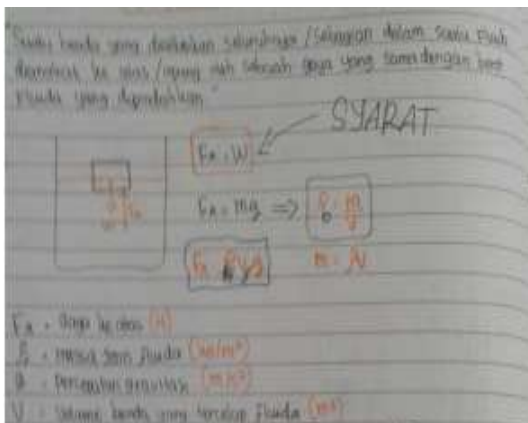 "Suatu benda yang dicelupkan seluruhnya / sebagian dalam suatu fluida
ke atas / oleh sebuah gaya yang sama dengan berat
fluida yang dipindahkan"
SYARAT
FA = W
FA = mg => ρ = m/v
FA = ρ v g
m = ρv
FA = Gaya ke atas (N)
ρ = massa jenis fluida (kg/m³)
g = percepatan gravitasi (m/s²)
V = volume benda yang tercelup fluida (m³)